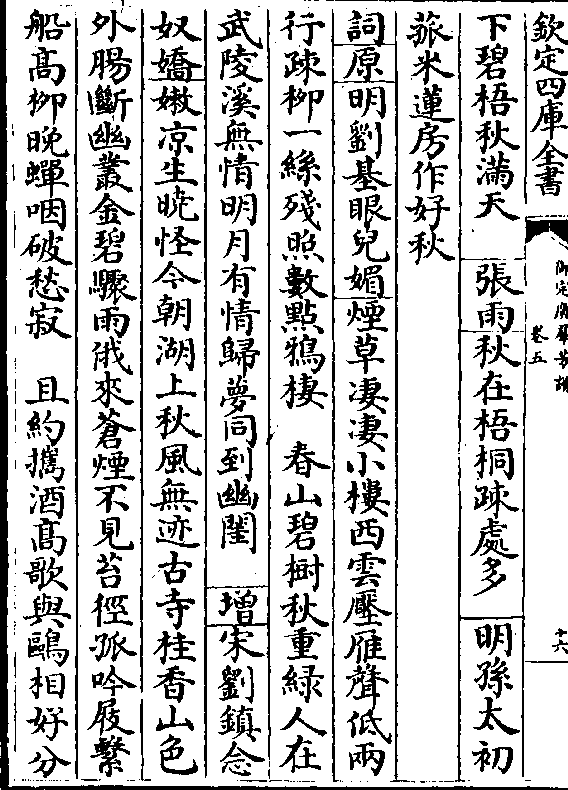 欽定四庫全書
御定廣羣芳譜
卷五
十六
下碧梧秋滿天　張雨秋在梧桐疎處多　明孫太初
菰米蓮房作好秋
詞原明劉基眼兒媚煙草淒淒小樓西雲壓雁聲低兩
行疎柳一絲殘照數點鴉棲　春山碧樹秋重綠人在
武陵溪無情明月有情歸夢同到幽閨　增宋劉鎮念
奴嬌嫩凉生曉怪今朝湖上秋風無迹古寺桂香山色
外腸斷幽叢金碧驟雨俄來蒼煙不見苔徑孤吟屐繫
船髙柳晚蟬咽破愁寂　且約攜酒髙歌與鷗相好分